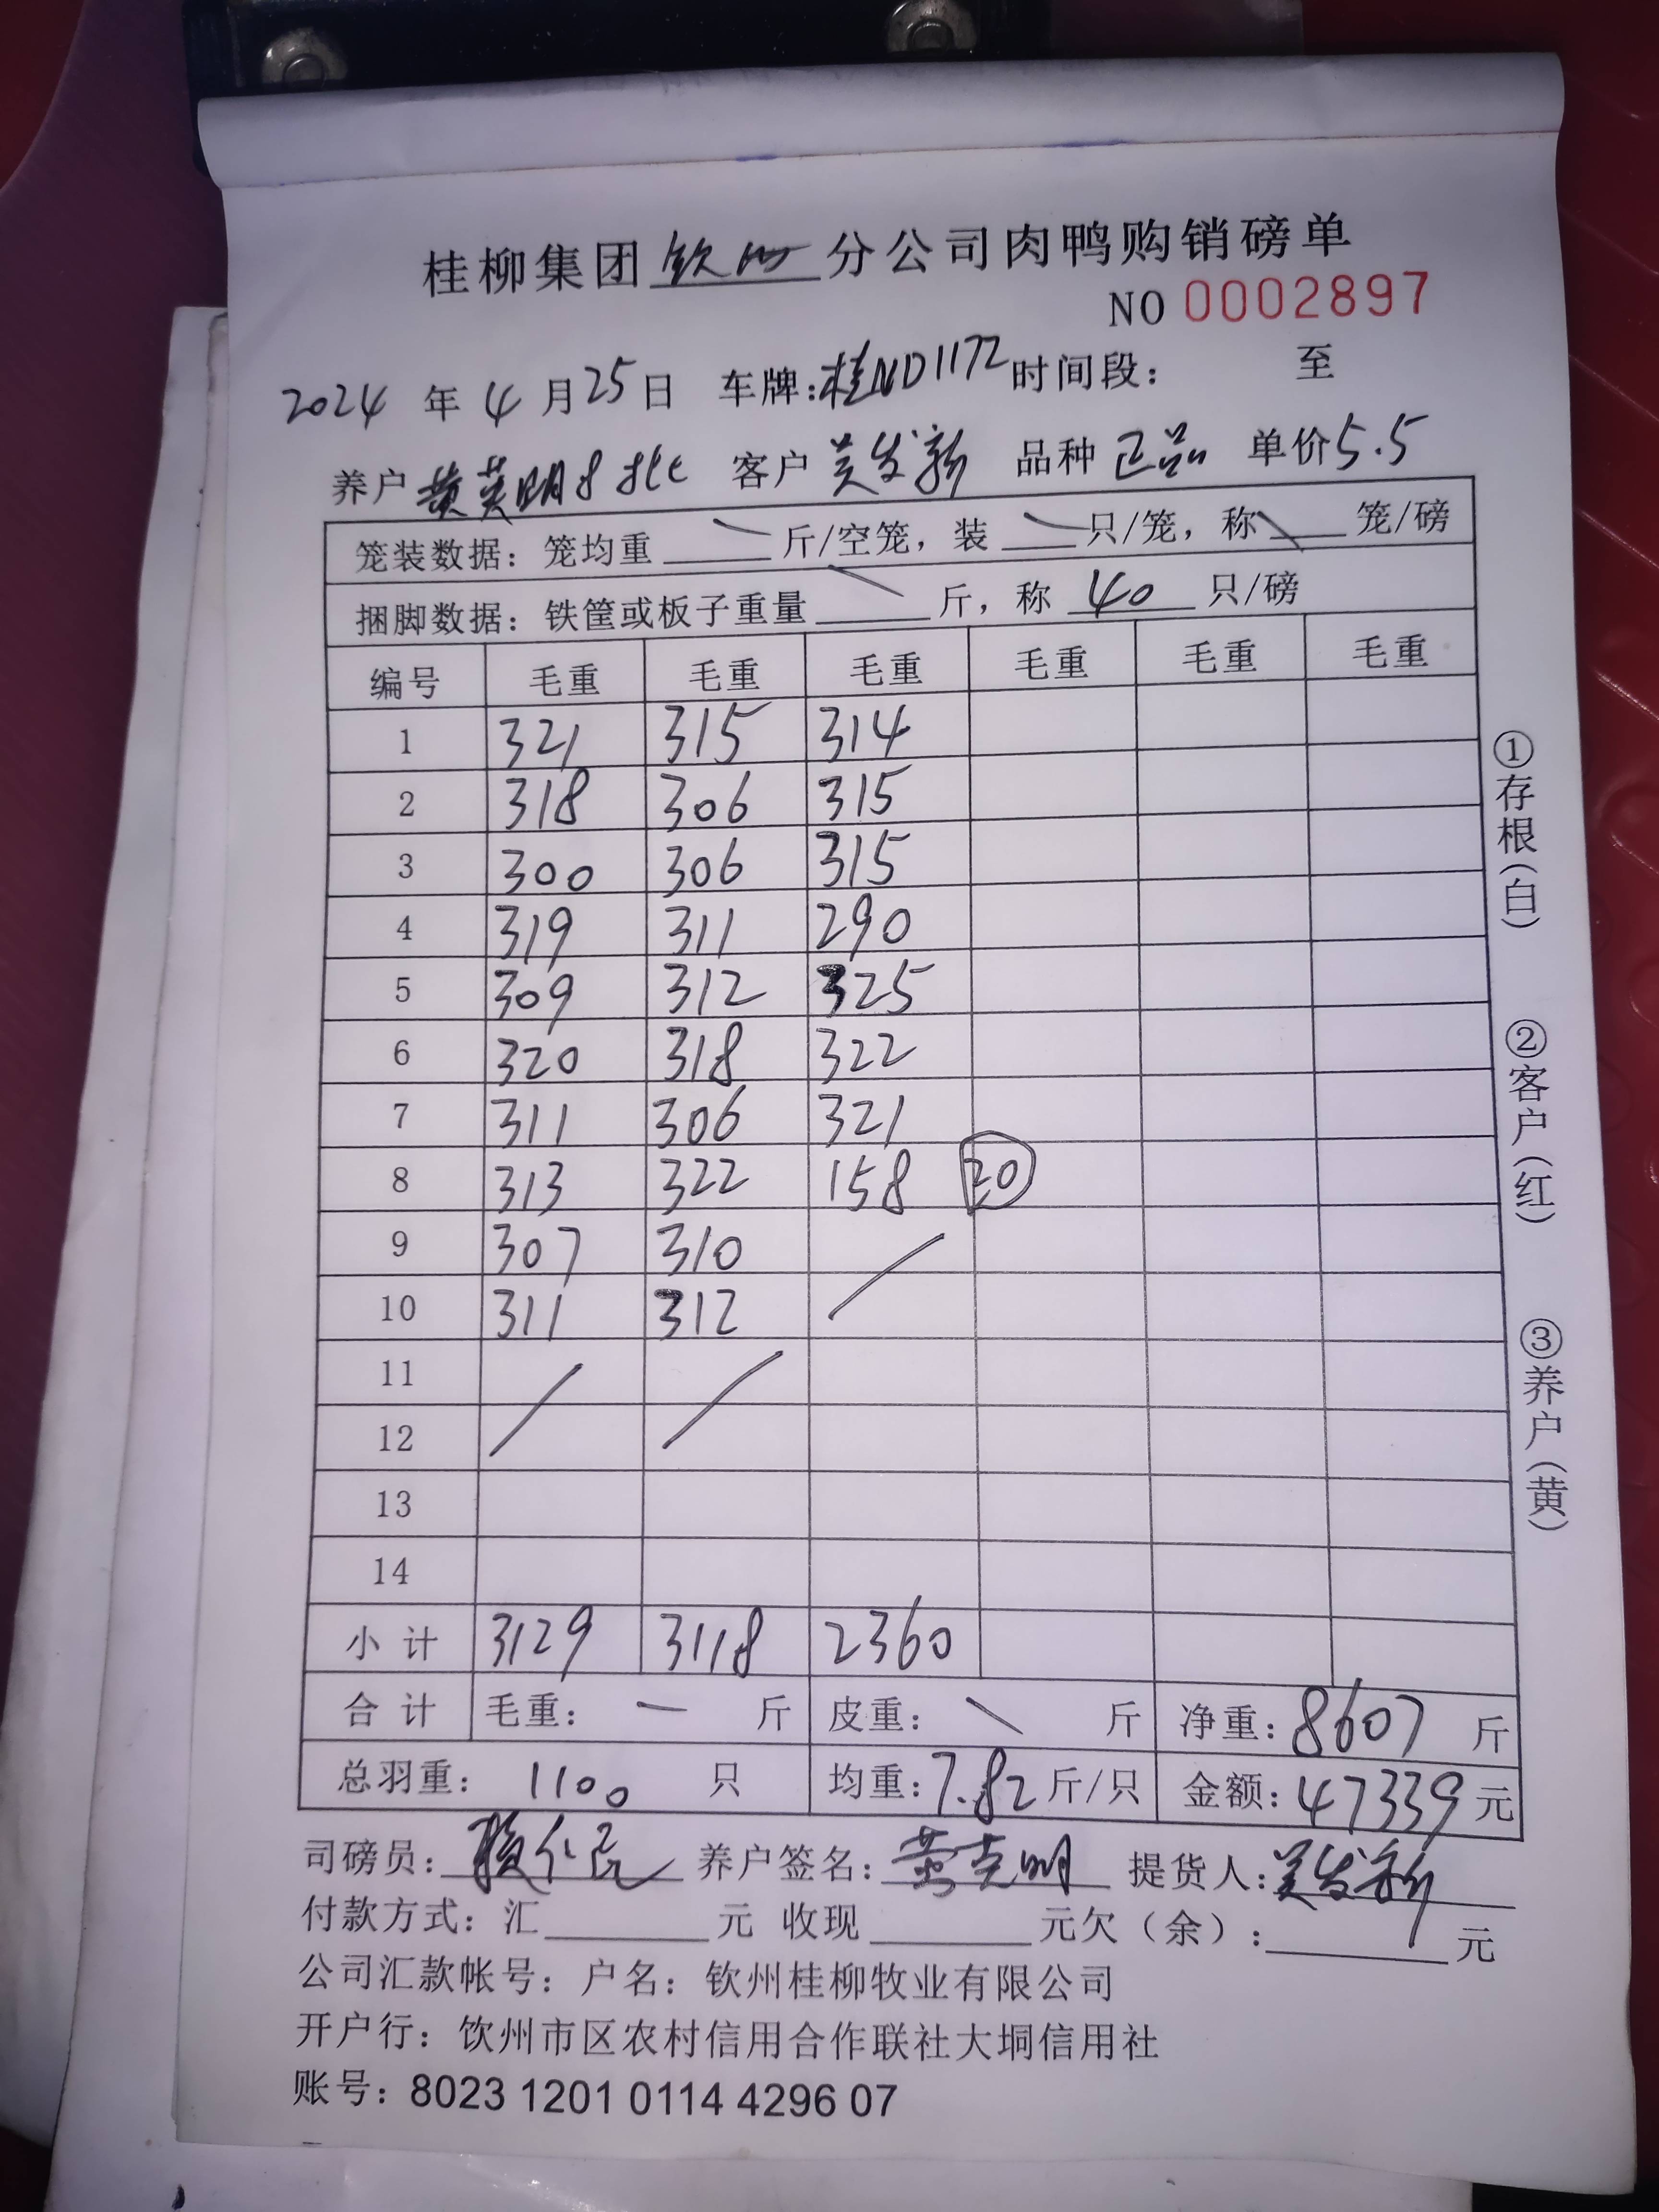 桂柳集团钦州分公司肉鸭购销磅单
NO 0002897
2024 年 4 月 25 日 车牌:桂ND1172 时间段: 至
养户 黄英明8批 客户 吴发新 品种 正品 单价 5.5
笼装数据: 笼均重 斤/空笼, 装 只/笼, 称 笼/磅
捆脚数据: 铁筐或板子重量 斤, 称 40 只/磅
编号 毛重 毛重 毛重 毛重 毛重 毛重
1 321 315 314
2 318 306 315
3 300 306 315
4 319 311 290
5 309 312 325
6 320 318 322
7 311 306 321
8 313 322 158 20
9 307 310
10 311 312
11
12
13
14
小计 3129 3118 2360
合计 毛重: 斤 皮重: 斤 净重: 8607 斤
总羽重: 1100 只 均重: 7.82 斤/只 金额: 47339 元
司磅员: 养户签名: 提货人: 吴发新
付款方式: 汇 元 收现 元欠(余): 元
公司汇款帐号: 户名: 钦州桂柳牧业有限公司
开户行: 饮州市区农村信用合作联社大垌信用社
账号: 8023 1201 0114 4296 07
①存根(白)
②客户(红)
③养户(黄)